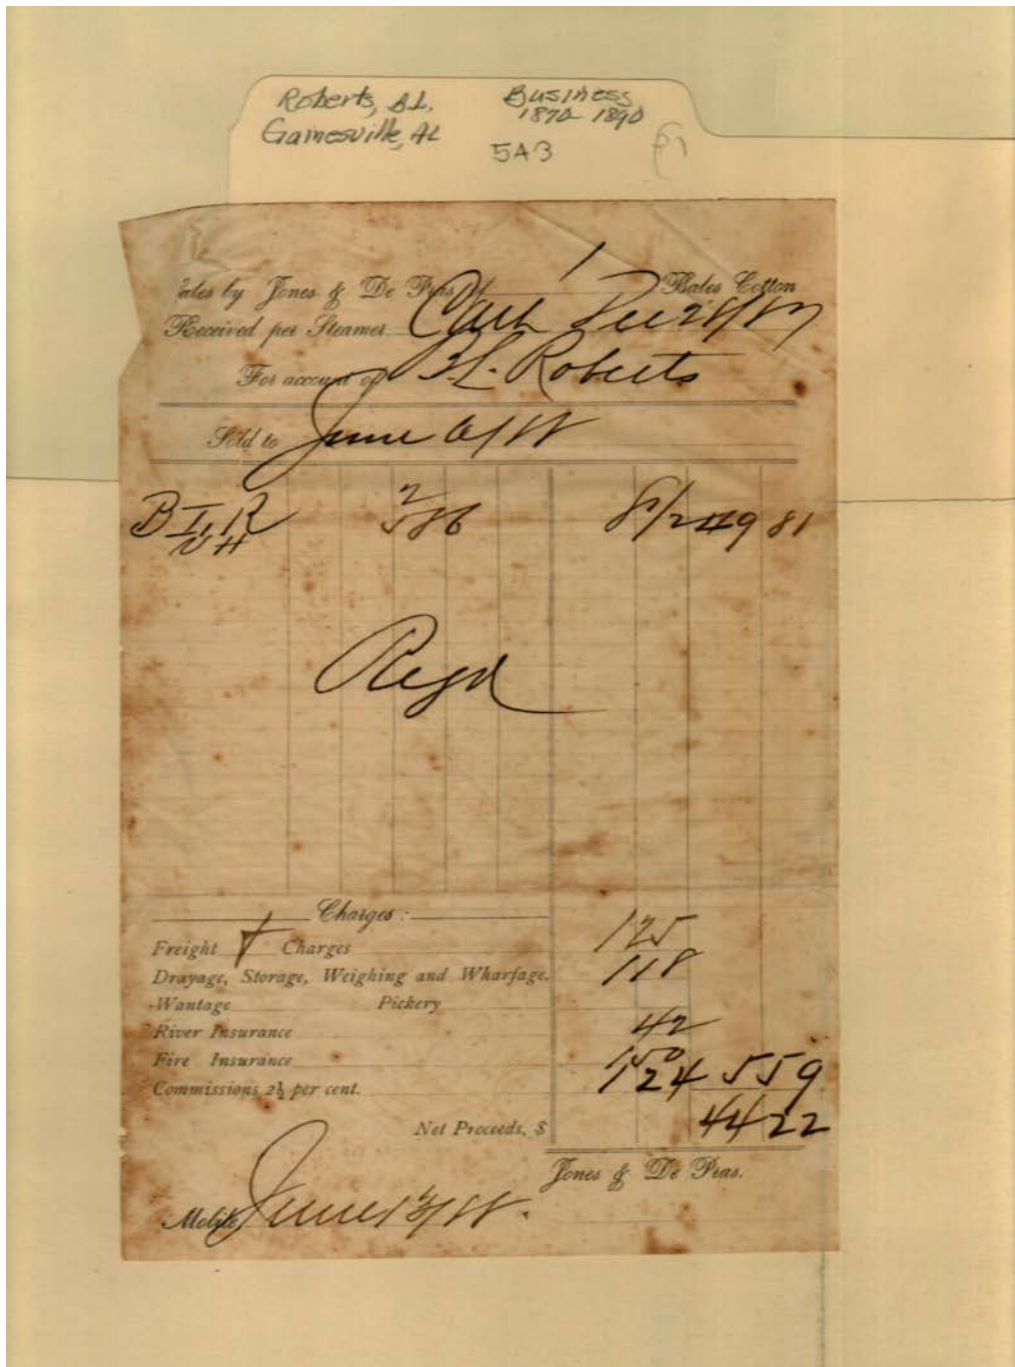 Roberts, B.L. Business
Gainesville, AL 1870-1890
5A3
Sales by Jones & De Pras of 1 Bales Cotton
Received per Steamer Dec 28/87
For account of B.L. Roberts
Sold to June 6/88
B L R 2 586 8 1/2 49 81
Charges:
Freight & Charges 125
Drayage, Storage, Weighing and Wharfage. 118
Wantage Pickery
River Insurance 42
Fire Insurance 150
Commissions 2½ per cent. 124 5 59
Net Proceeds, $ 44 22
Jones & De Pras.
Mobile June 13/88.